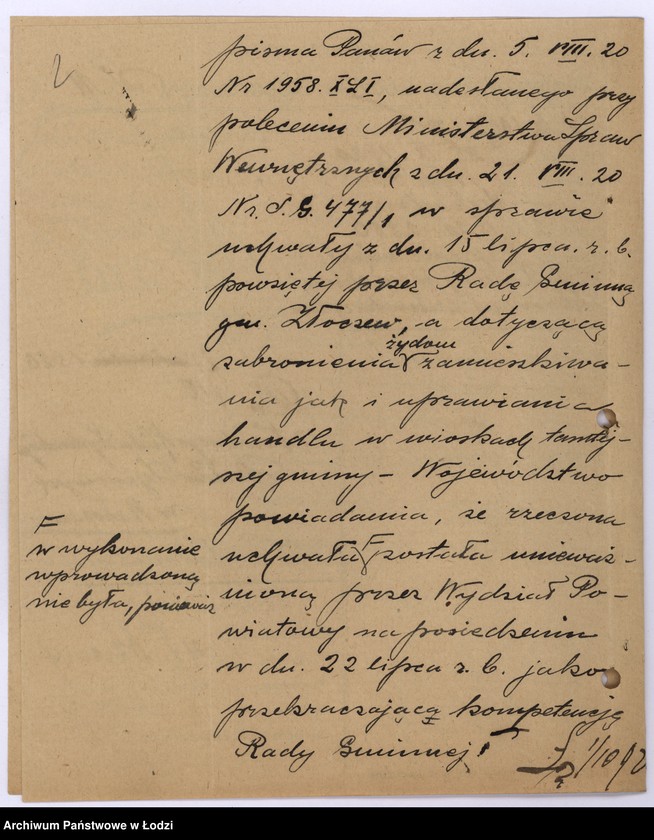 2
pisma Panów z dn. 5. VIII. 20
Nr 1958. XLI, nadesłanego przy
poleceniu Ministerstwa Spraw
Wewnętrznych z dn. 21. VIII. 20
Nr. S. G. 477/1 w sprawie
uchwały z dn. 15 lipca. r. b.
powziętej przez Radę Gminną
gm. Złoczew, a dotyczącą
żydom
zabronienia zamieszkiwa-
nia jak i uprawiania
handlu w wioskach tamtej-
szej gminy – Województwo
powiadamia, że rzeczona
uchwała F została unieważ-
nioną przez Wydział Po-
wiatowy na posiedzeniu
w dn. 22 lipca r. b. jako
przekraczającą kompetencję
Rady Gminnej
1/10
F
w wykonanie
wprowadzoną
nie była, ponieważ
Archiwum Państwowe w Łodzi